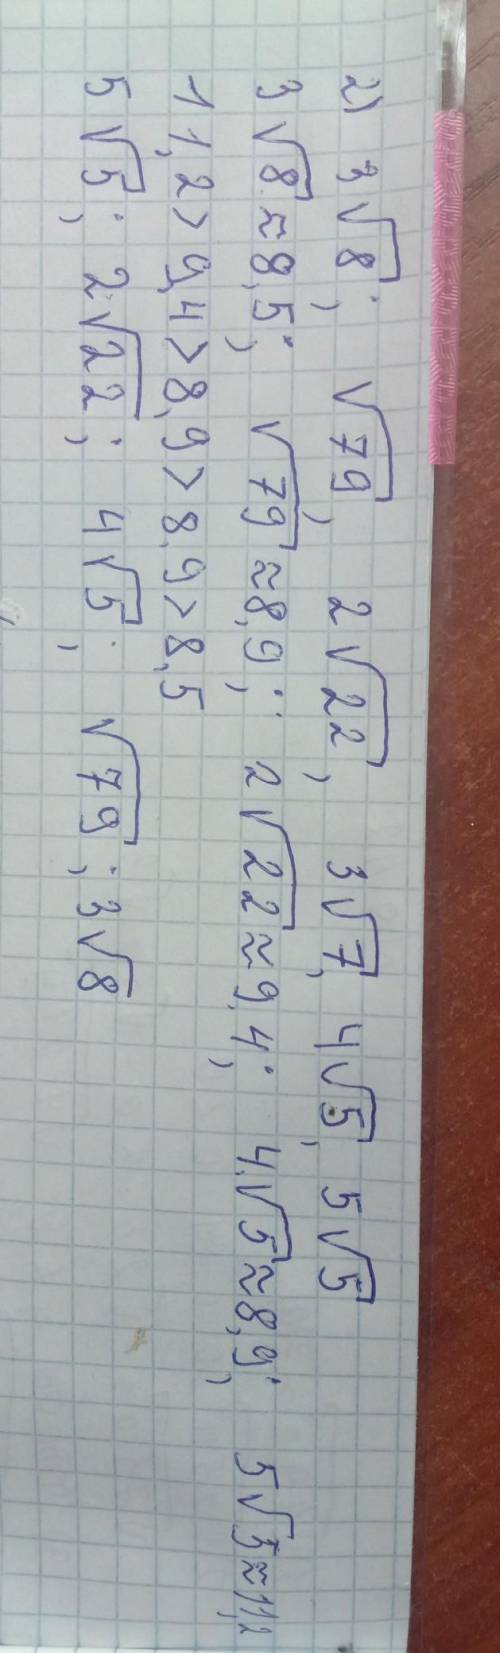 2) 3√8; √79, 2√22, 3√7, 4√5, 5√5
3√8 ≈ 8,5; √79 ≈ 8,9; 2√22 ≈ 9,4; 4√5 ≈ 8,9; 5√5 ≈ 11,2
11,2 > 9,4 > 8,9 > 8,9 > 8,5
5√5; 2√22; 4√5; √79; 3√8